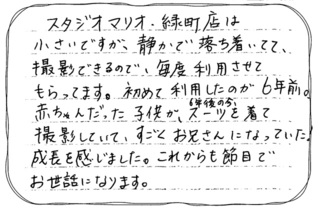 スタジオマリオ・緑町店は
小さいですが、静かで落ち着いてて、
撮影できるので、毎度利用させて
もらってます。初めて利用したのが6年前。
赤ちゃんだった子供が、6年後の今、スーツを着て
撮影していて、すごくお兄さんになっていた!
成長を感じました。これからも節目で
お世話になります。